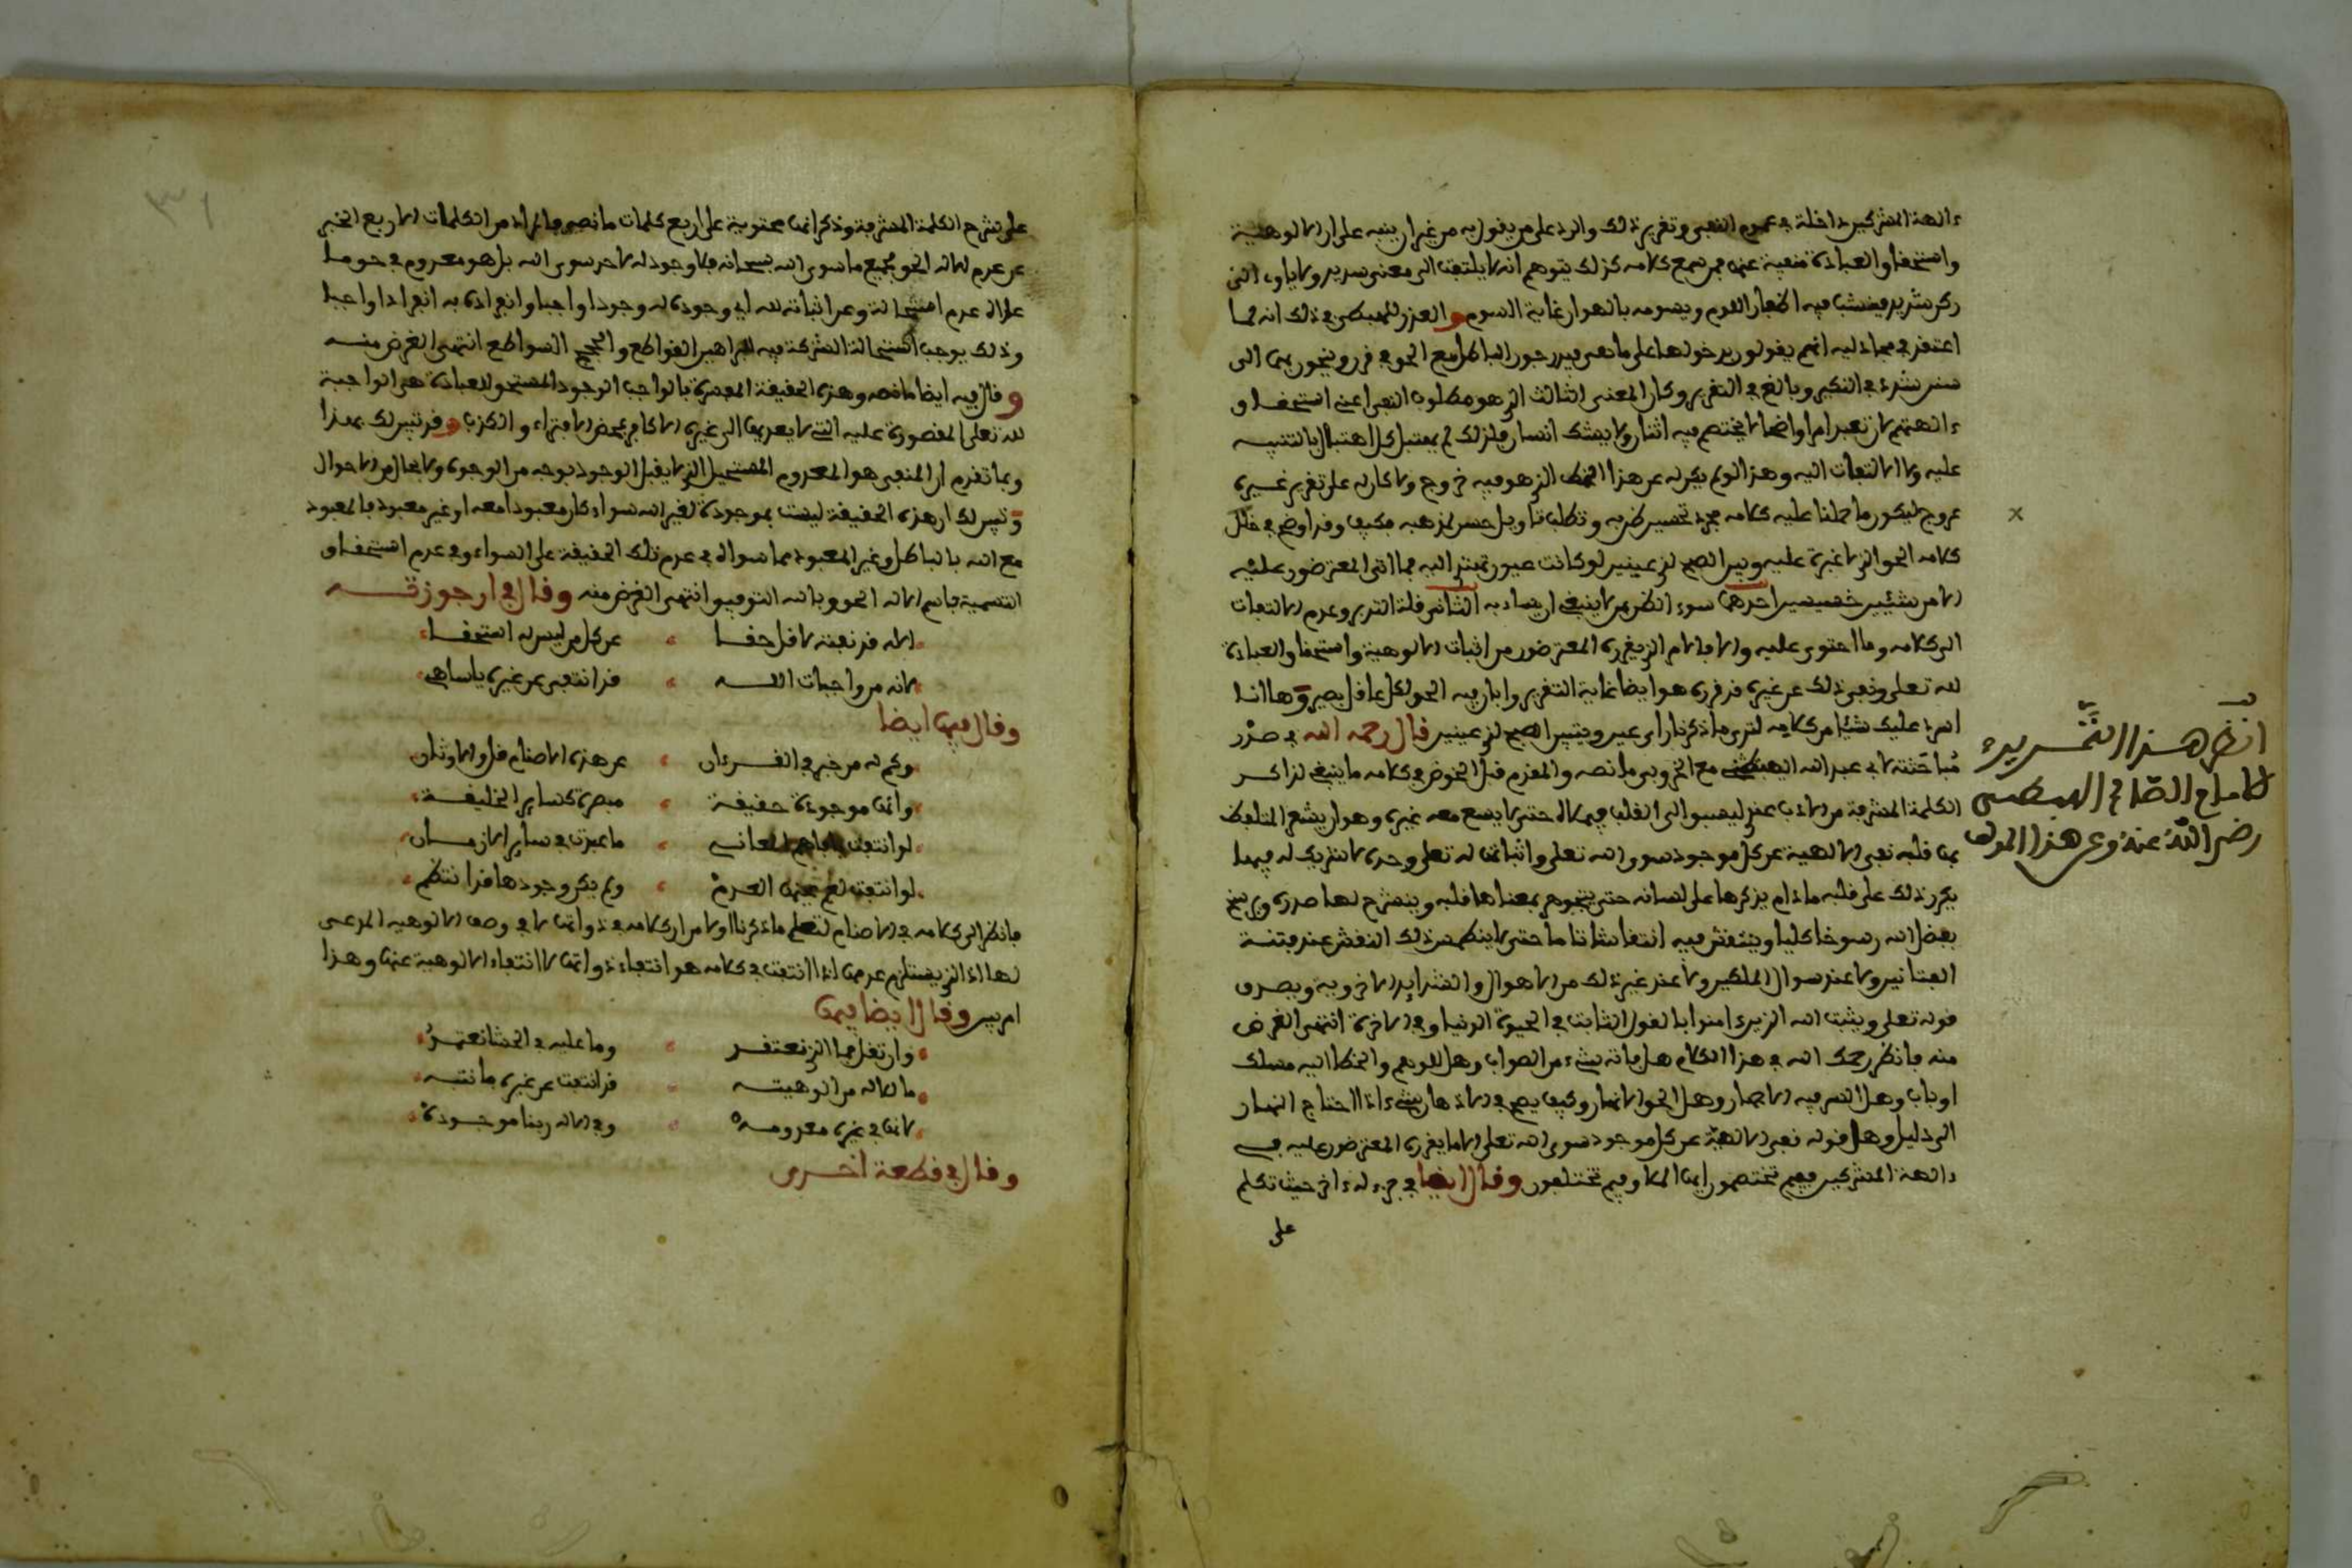 ءالهة المشركين داخلة في عموم النفي وتقرير ذلك والرد على من يقول به من غير ان ينبه على ان الالوهية
واستحقاق العبادة منفية عنها فمن سمع كلامه كذلك يتوهم انه لا يلتفت الى معنى سديد ولا ياوي الى
ركن شديد فينشب فيه اظفار اللوم ويسومه بالهوان غاية السوم والعذر للهبطي في ذلك انه لما
اعتقد في مجادليه انهم يقولون بدخولها على ما نفي فيدرجون الباطل مع الحق في قرن وينحون بها الى
شدد في النكير وبالغ في التقرير وكان المعنى الثالث الذي هو مطلوب النفي اعني استحقاق
ءالهتهم لان تعبد امرا واضحا لا يختصم فيه اثنان ولا يشك انسان فلذلك لم يهتبل كل اهتبال بالتنبيه
عليه ولا الالتفات اليه وهذا لو لم يكن له عن هذا الخطا الذي هو فيه خروج ولا كان له على تقرير غيره
عروج ليكون ما حملنا عليه كلامه مجرد تحسين ظن به وتطلب تاويل حسن لمذهبه فكيف وقد اوضح في خلال
كلامه الحق الذي لا غبرة عليه وبين الصبح لذي عينين لو كانت عيون تمتد اليه فما اتى المعترضون عليه
الا من شيئين خسيسين احدهما سوء الظن بمن لا ينبغي ان يساء به الثاني قلة التدبر وعدم الالتفات
الى كلامه وما احتوى عليه والا فالامام الذي يقرره المعترضون من اثبات الالوهية واستحقاق العبادة
لله تعلى ونفي ذلك عن غيره قد قرره هو ايضا غاية التقرير وابان فيه الحق لكل عاقل بصير وها انا
اسرد عليك شيئا من كلامه لترى ما ذكرنا راي عين ويتبين الصبح لذي عينين قال رحمه الله في صدر
مباحثته لابي عبد الله اليسيتني مع الخروبي ما نصه والمقدم قبل الخوض في كلامه ما ينبغي لذاكر
الكلمة المشرفة من الادب عند ليسبق الى القلب فهمها حتى لا يسع معه غيره وهو ان يشعر المتلفظ
بها قلبه نفي الالهية عن كل موجود سوى الله تعلى واثباتها له تعلى وحده لا شريك له فيها
يكرر ذلك على قلبه ما دام يذكرها على لسانه حتى يتجوهر بمعناها قلبه وينشرح لها صدره ويرسخ
بفضل الله رسوخا كليا وينتقش فيه انتقاشا تاما حتى لا ينطمس ذلك النقش عند فتنة
الفتانين ولا عند سوال الملكين ولا عند غير ذلك من الاهوال والشدايد الاخروية ويصدق
قوله تعلى ويثبت الله الذين ءامنوا بالقول الثابت في الحيوة الدنيا وفي الاخرة انتهى الغرض
منه فانظر رحمك الله في هذا الكلام هل فاته شيء من الصواب وهل للوهم والخطا اليه مسلك
او باب وهل التبس فيه الابصار وهل الحق الا نهار وكيف يصح في الاذهان شيء اذا احتاج النهار
الى دليل وهل قوله نفي الالهية عن كل موجود سوى الله تعلى الا ما يقرره المعترضون عليه في
ءالهة المشركين ففيم تختصمون ايها الملا وفيم تختلفون وقال ايضا في جزء له ءاخر حيث تكلم
على
انظر هذا التشديد
للامام الصالح الهبطي
رضي الله عنه وعن هذا المؤلف
٣١
على شرح الكلمة المشرفة وذكر انها محتوية على اربع كلمات ما نصه فالمراد من الكلمات الاربع الخبر
عن عدم الاله الحق لجميع ما سوى الله سبحانه فلا وجود له لاحد سوى الله بل هو معدوم في حق ما
علاله عدم استحالة وعن اثباته لله اي وجوده له وجودا واجبا وانفراده به انفرادا واجبا
وذلك يوجب استحالة الشركة فيه البراهين القواطع والحجج السواطع انتهى الغرض منه
وقال فيه ايضا ما نصه وهذه الحقيقة المفسرة بالواجب الوجود المستحق للعبادة هي الواجبة
لله تعلى المقصورة عليه التي لا يعديها الى غيره الا كافر بمحض الافتراء والكذب وقد تبين لك بهذا
وبما تقدم ان المنفي هو المعدوم المستحيل الذي لا يقبل الوجود بوجه من الوجوه ولا بحال من الاحوال
وتبين لك ان هذه الحقيقة ليست بموجودة لغير الله سواء كان معبودا معه او غير معبود فالمعبود
مع الله بالباطل وغير المعبود مما سواه في عدم تلك الحقيقة على السواء وفي عدم استحقاق
التسمية باسم الاله الحق وبالله التوفيق انتهى الغرض منه وقال في ارجوزته
الاله قد نفيته لا قل حقا عن كل من ليس له استحقا
لانه من واجبات الله قد انتفى عن غيره يا ساهي
وقال فيها ايضا
وكم له من خبر في القرءان عن هذه الاصنام قل والاوثان
وانها موجودة حقيقة مبصرة كساير الخليقة
لو انتفت المعاني ما عبدت في ساير الازمان
لو انتفت لعمها العدم ولم يكن وجودها قد انتظم
فانظر الى كلامه في الاصنام لتعلم ما ذكرنا اولا من ان كلامه في ذواتها لا في وصف الالوهية المدعى
لها اذ الذي يستلزم عدمها اذا انتفت في كلامه هو انتفاء ذواتها لا انتفاء الالوهية عنها وهذا
امر بين وقال ايضا فيها
وان تقل فما الذي نعتقد وما عليه في الحشا نعتمد
ما للاله من الوهيته قد انتفت عن غيره فانتبه
لانها في غيره معدومه وفي الاله ربنا موجودة
وقال في قطعة اخرى